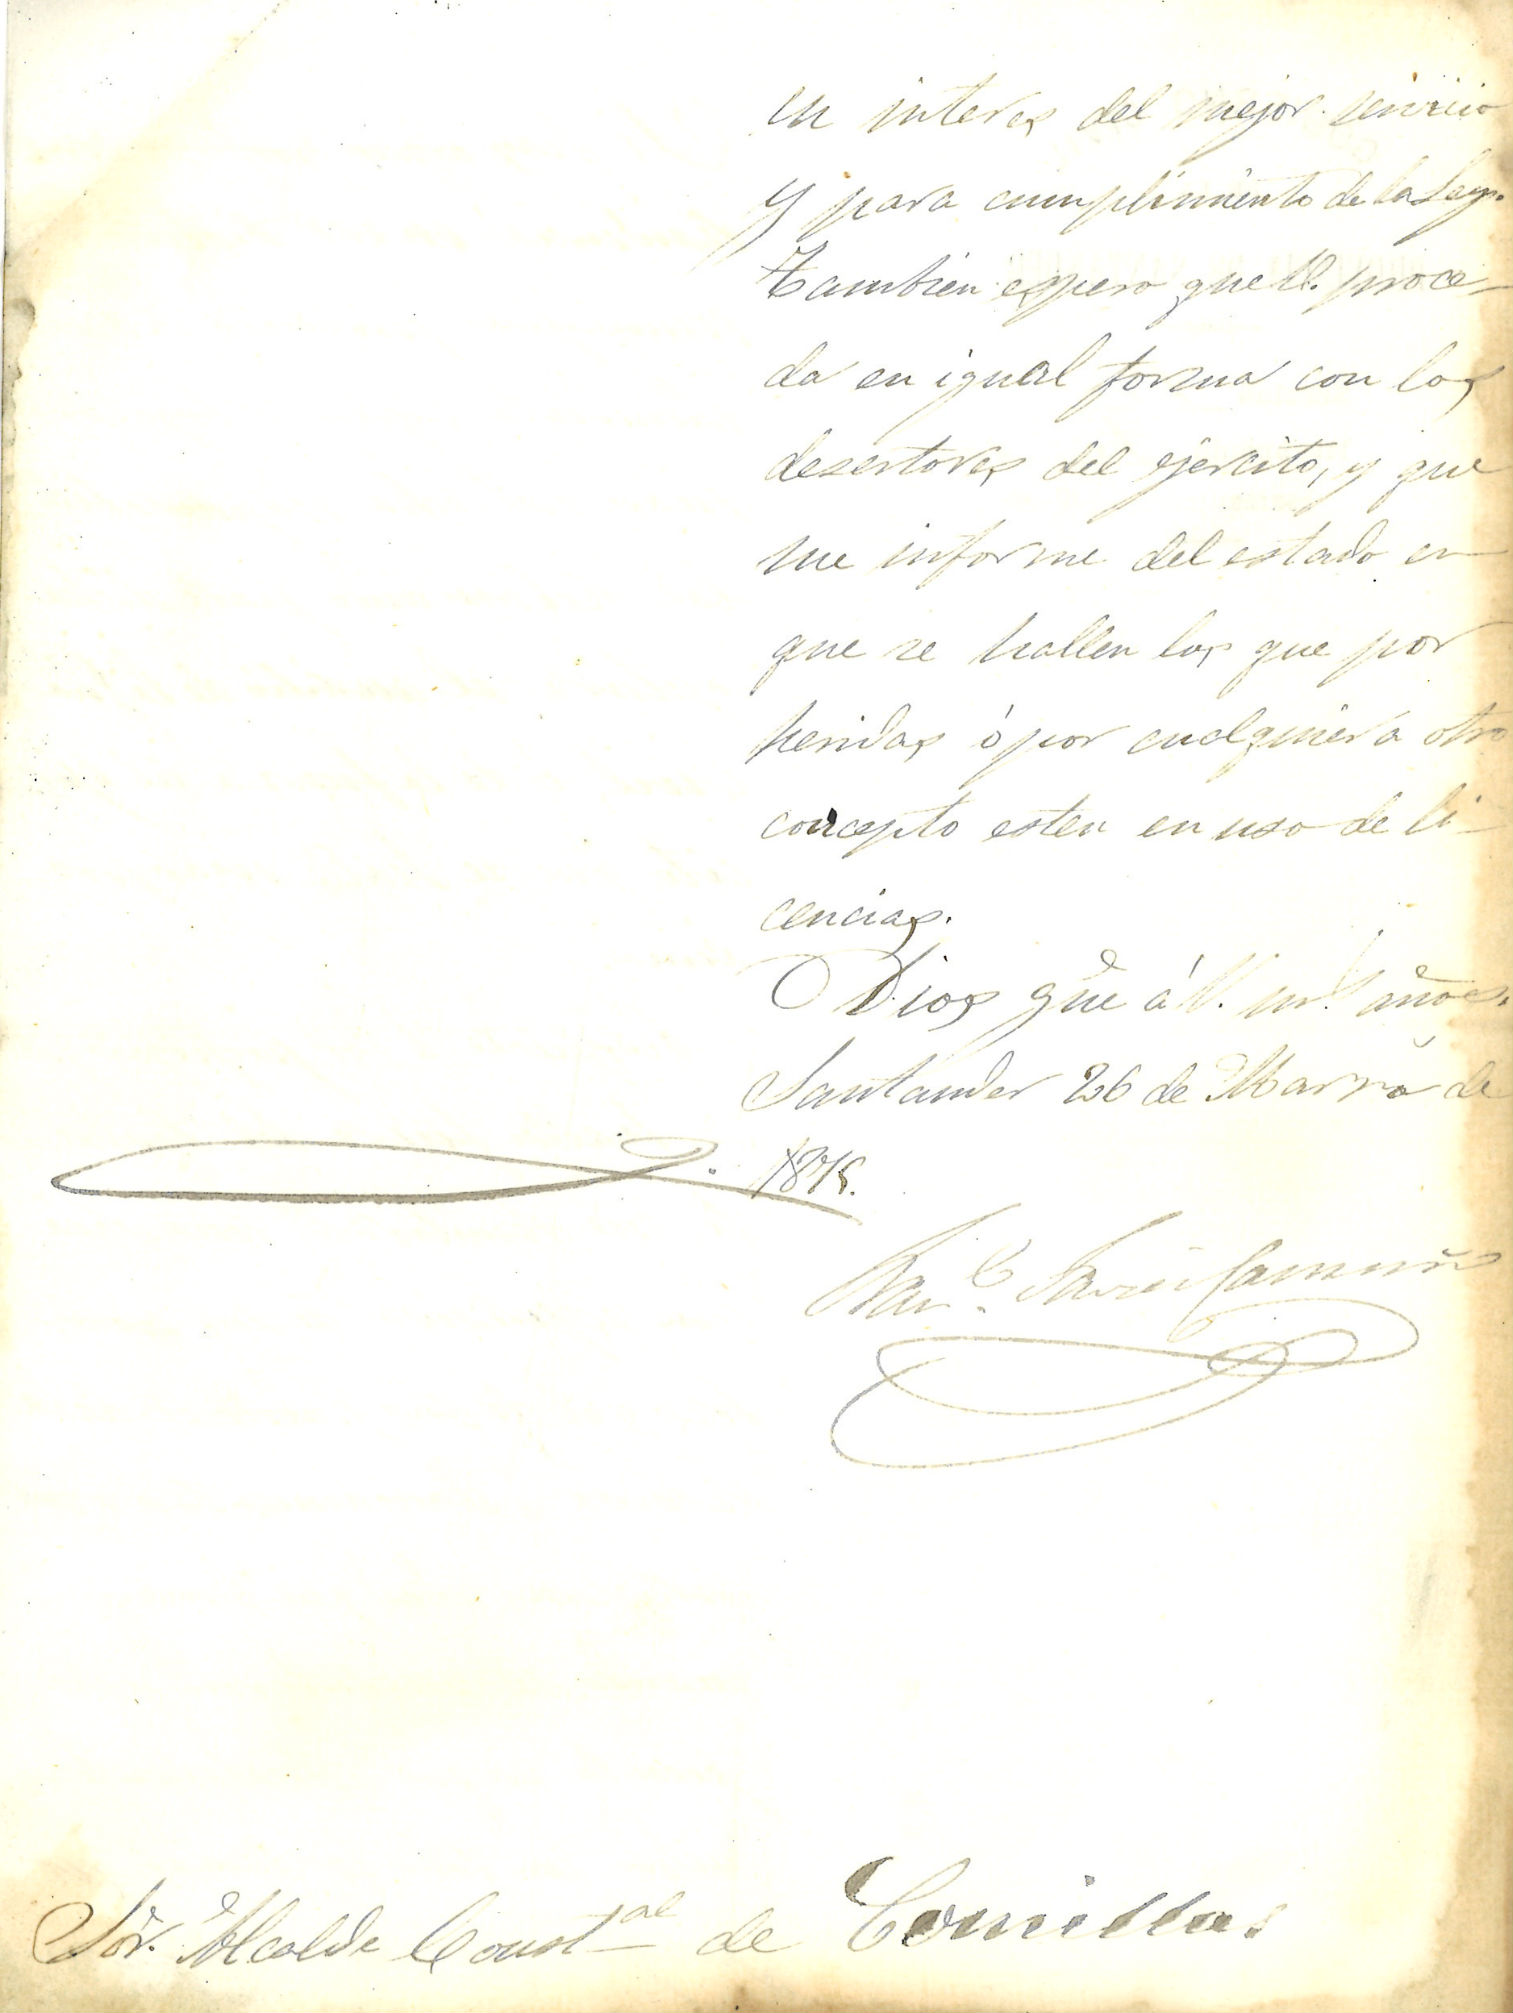 en interes del mejor servicio
y para cumplimiento de la Ley.
Tambien espero que V. proce-
da en igual forma con los
desertores del ejercito, y que
me informe del estado en
que se hallen los que por
heridas ó por cualquiera otro
concepto esten en uso de li-
cencias.
Dios gūe á V. ms. años.
Santander 26 de Marzo de
Sor. Alcalde Constal de Comillas.